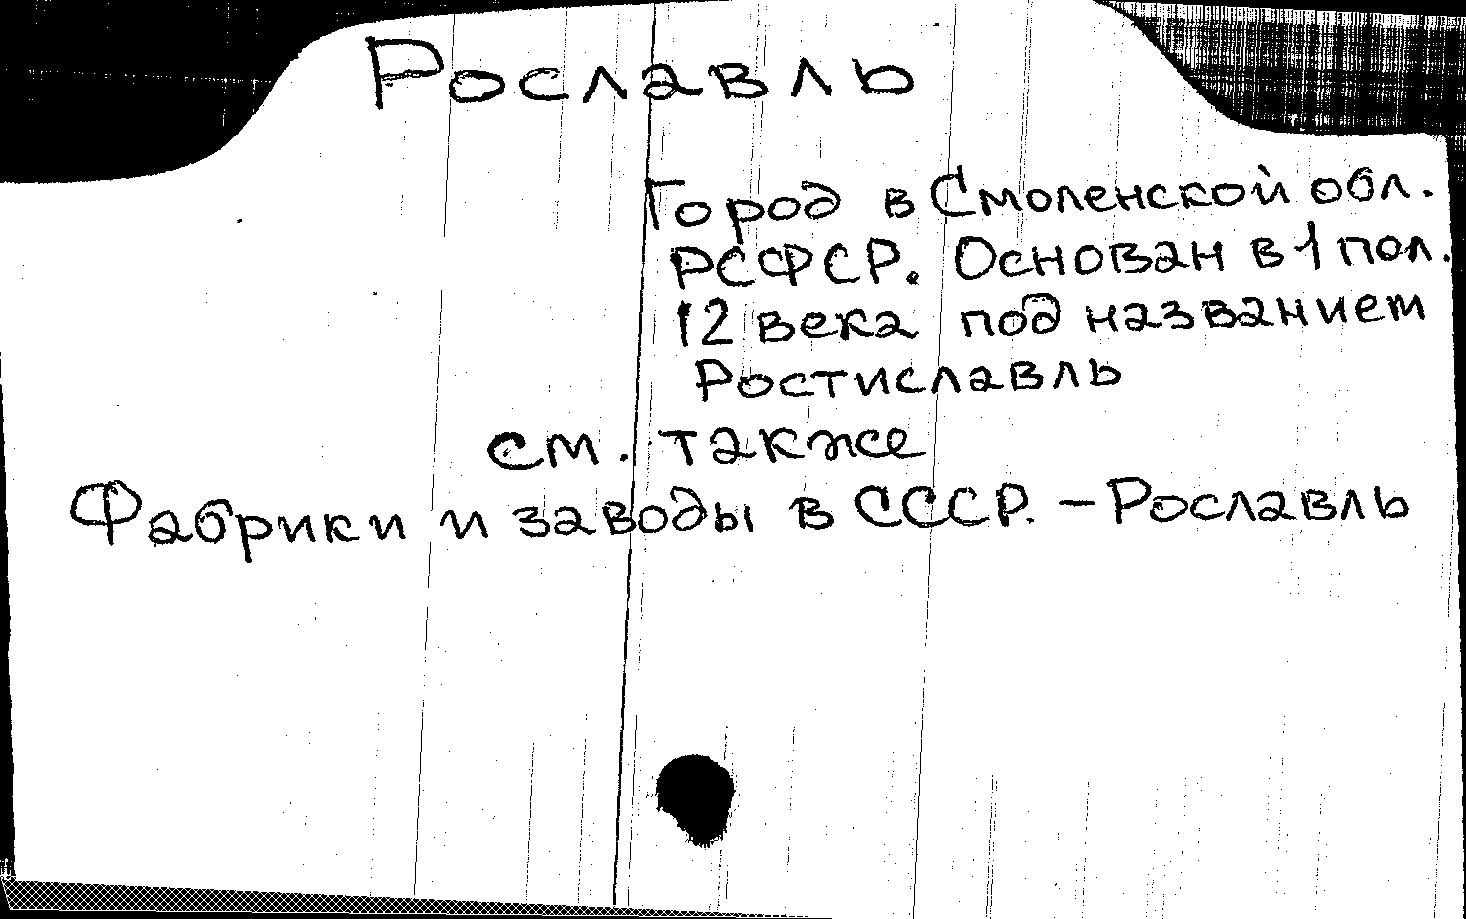 Рославль
Город в Смоленской обл.
РСФСР. Основан в 1 пол.
12 века под названием
Ростиславль
см. также
Фабрики и заводы в СССР. - Рославль